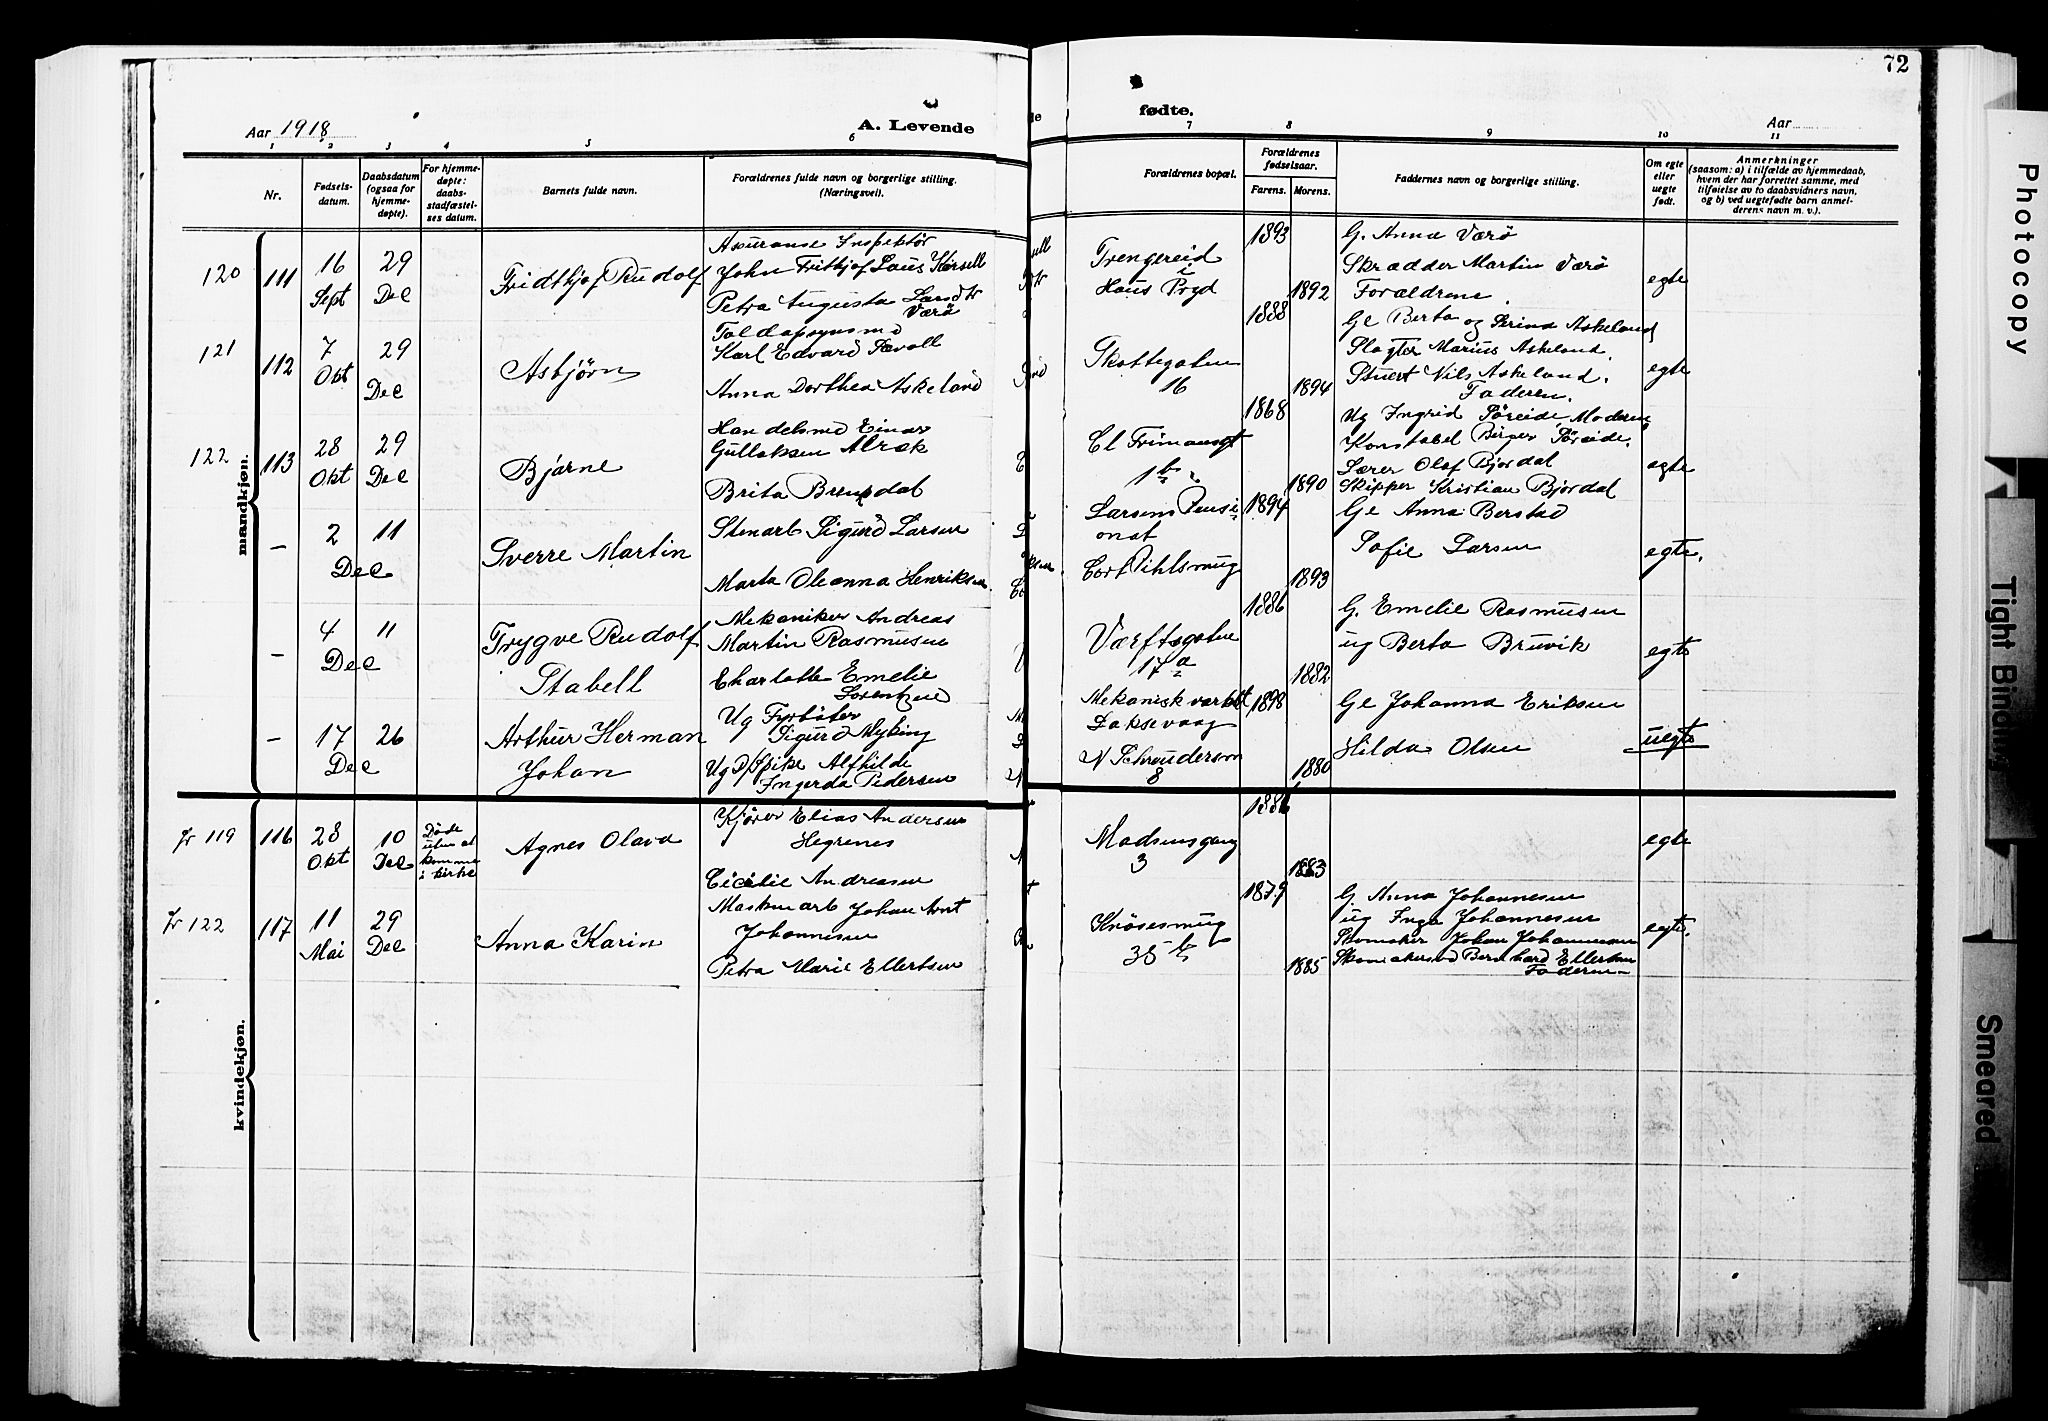 72
Aar 1918
A. Levende
fødte.
Aar
1 2 3 4 5 6 7 8 9 10 11
Nr.
Fødsels-
datum.
Daabsdatum
(ogsaa for
hjemme-
døpte).
For hjemme-
døpte:
daabs-
stadfæstel-
ses datum.
Barnets fulde navn.
Forældrenes fulde navn og borgerlige stilling.
(Næringsvei).
Forældrenes bopæl.
Forældrenes
fødselsaar.
Farens. Morens.
Faddernes navn og borgerlige stilling.
Om egte
eller
uegte
født.
Anmerkninger
(saasom: a) i tilfælde av hjemmedaab,
hvem der har forrettet samme, med
tilføielse av to daabsvidners navn,
og b) ved uegtefødte barn anmel-
derens navn m. v.).
mandkjøn.
120 111
16
Sept
29
Dec
Fridthjof Rudolf
Assuranse Inspektør
John Frithjof Laus Kørsell
Petra Augusta Larsdtr
Værø
Trengereid
i
Haus Prgd
1893
1892
G. Anna Værø
Skrædder Martin Værø
Forældrene.
egte
121 112
7
Okt
29
Dec
Asbjørn
Toldopsynsmd
Karl Edvard Sævoll
Anna Dorthea Askeland
Skottegaten
16
1888
1894
Ge Berta og Serina Askeland
Slagter Marius Askeland.
Stuert Nils Askeland.
Faderen.
egte
122 113
28
Okt
29
Dec
Bjarne
Handelsmd Einar
Gullaksen Alræk
Brita Brensdal
Cl Frimansgt
1b
1868
1890
Ug Ingrid Søreide, Moderen
Konstabel Birger Søreide.
Lærer Olaf Bjordal
Skipper Kristian Bjordal
egte
–
2
Dec
11
Sverre Martin
Stenarb Sigurd Larsen
Marta Oleanna Henriksen.
Larsens Pensi
onat
Cort Pihlsmug
1894
1893
Ge Anna Berstad
Sofie Larsen
egte.
–
4
Dec
11
Trygve Rudolf
Stabell
Mekaniker Andreas
Martin Rasmusen
Charlotte Emelie
Lorentzen
Værftsgaten
17a
1886
1882
G. Emelie Rasmusen
ug Berta Bruvik
egte
–
17
Dec
26
Arthur Herman
Johan
Ug Fyrbøter
Sigurd Myking
Ug Pike Alfhilde
Ingerda Pedersen
Mekanisk værkst
Laksevaag
N Schreudersm
8
1898
1880
Ge Johanna Eriksen
Hilda Olsen
uegte
kvindekjøn.
fr 119 116
28
Okt
10
Dec
Døde
uten at
komme
i kirke
Agnes Olava
Kjører Elias Andersen
Hegrenes
Cecilie Andreasen
Madsensgang
3
1886
1883
egte
fr 122 117
11
Mai
29
Dec
Anna Karin
Maskinarb Johan Arnt
Johannesen
Petra Marie Ellertsen
Knøsesmug
35 b
1879
1885
G. Anna Johannesen
ug Inga Johannesen
Skomaker Johan Johannesen
Skomakersvd Bernhard Ellertsen
Faderen
egte.
Photocopy
Tight Binding
Smeared